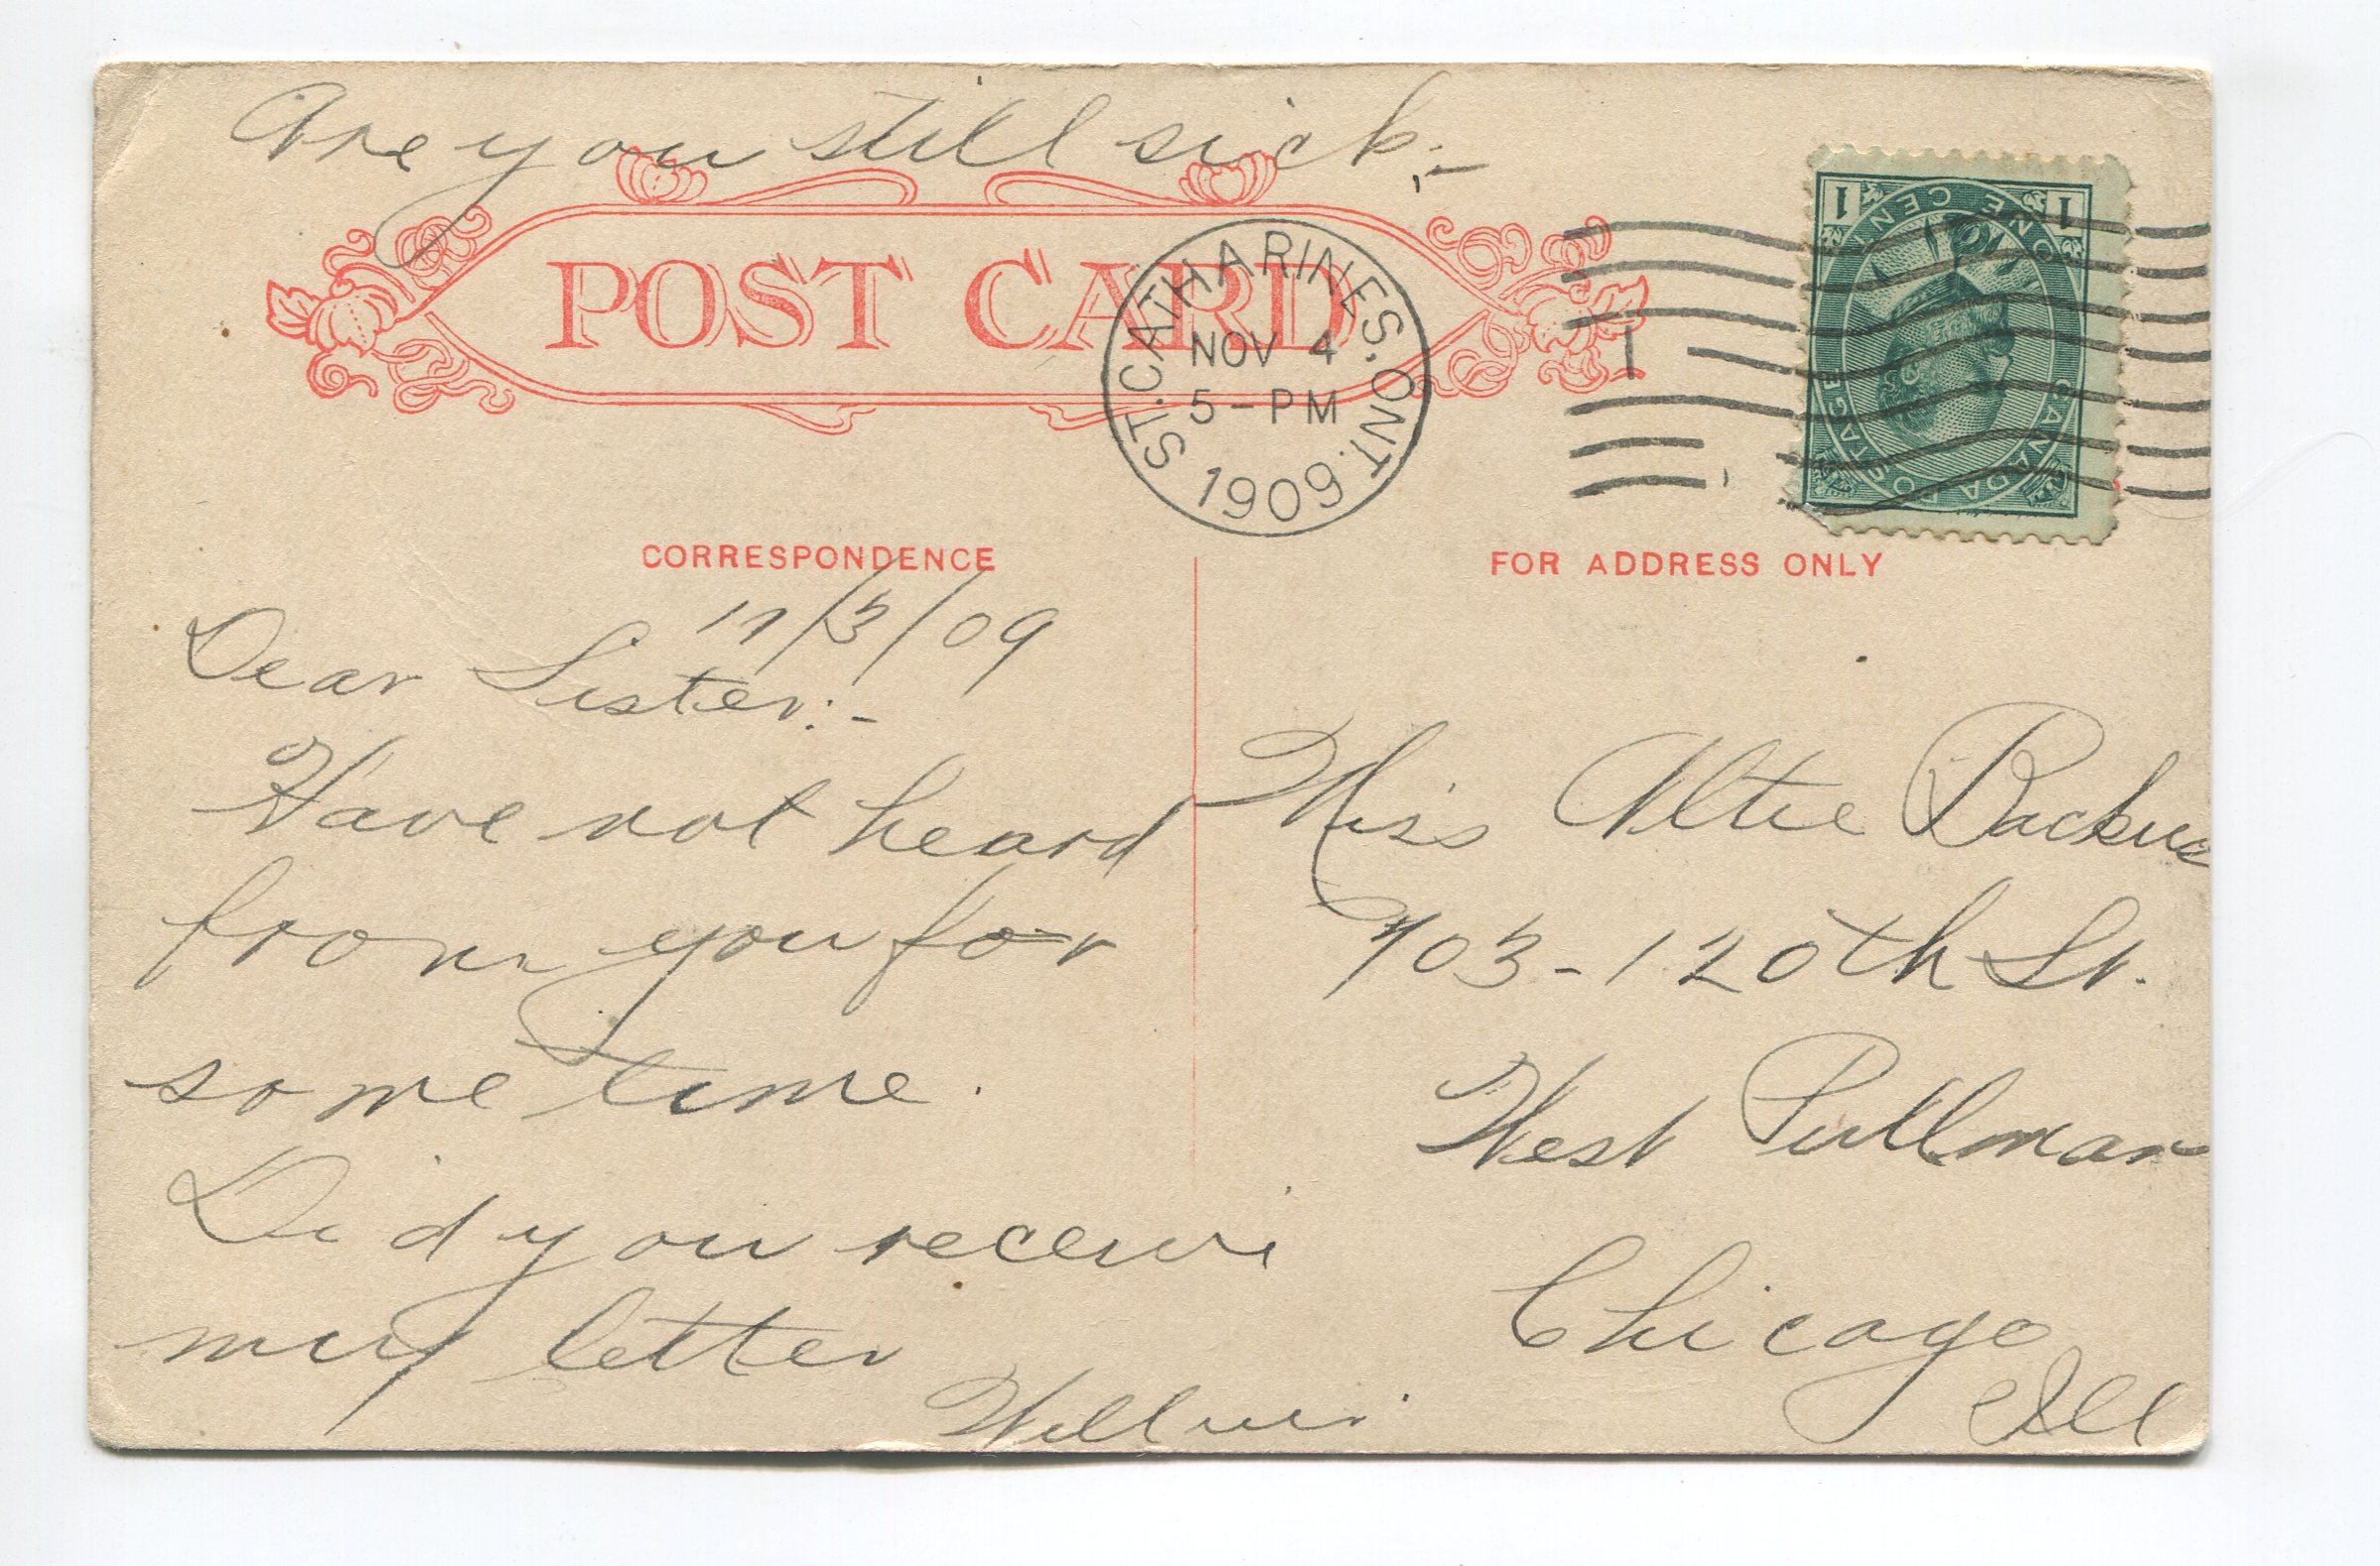 Are you still sick:-
POST CARD
ST. CATHARINES. ONT.
NOV 4
5-PM
1909
1
1 1
ONE CENT
CANADA POSTAGE
CORRESPONDENCE
FOR ADDRESS ONLY
11/3/09
Dear Sister:-
Have not heard
from you for
some time.
Did you receive
my letter
Miss Altie Backus
703-120th St.
West Pullman
Chicago
Ill